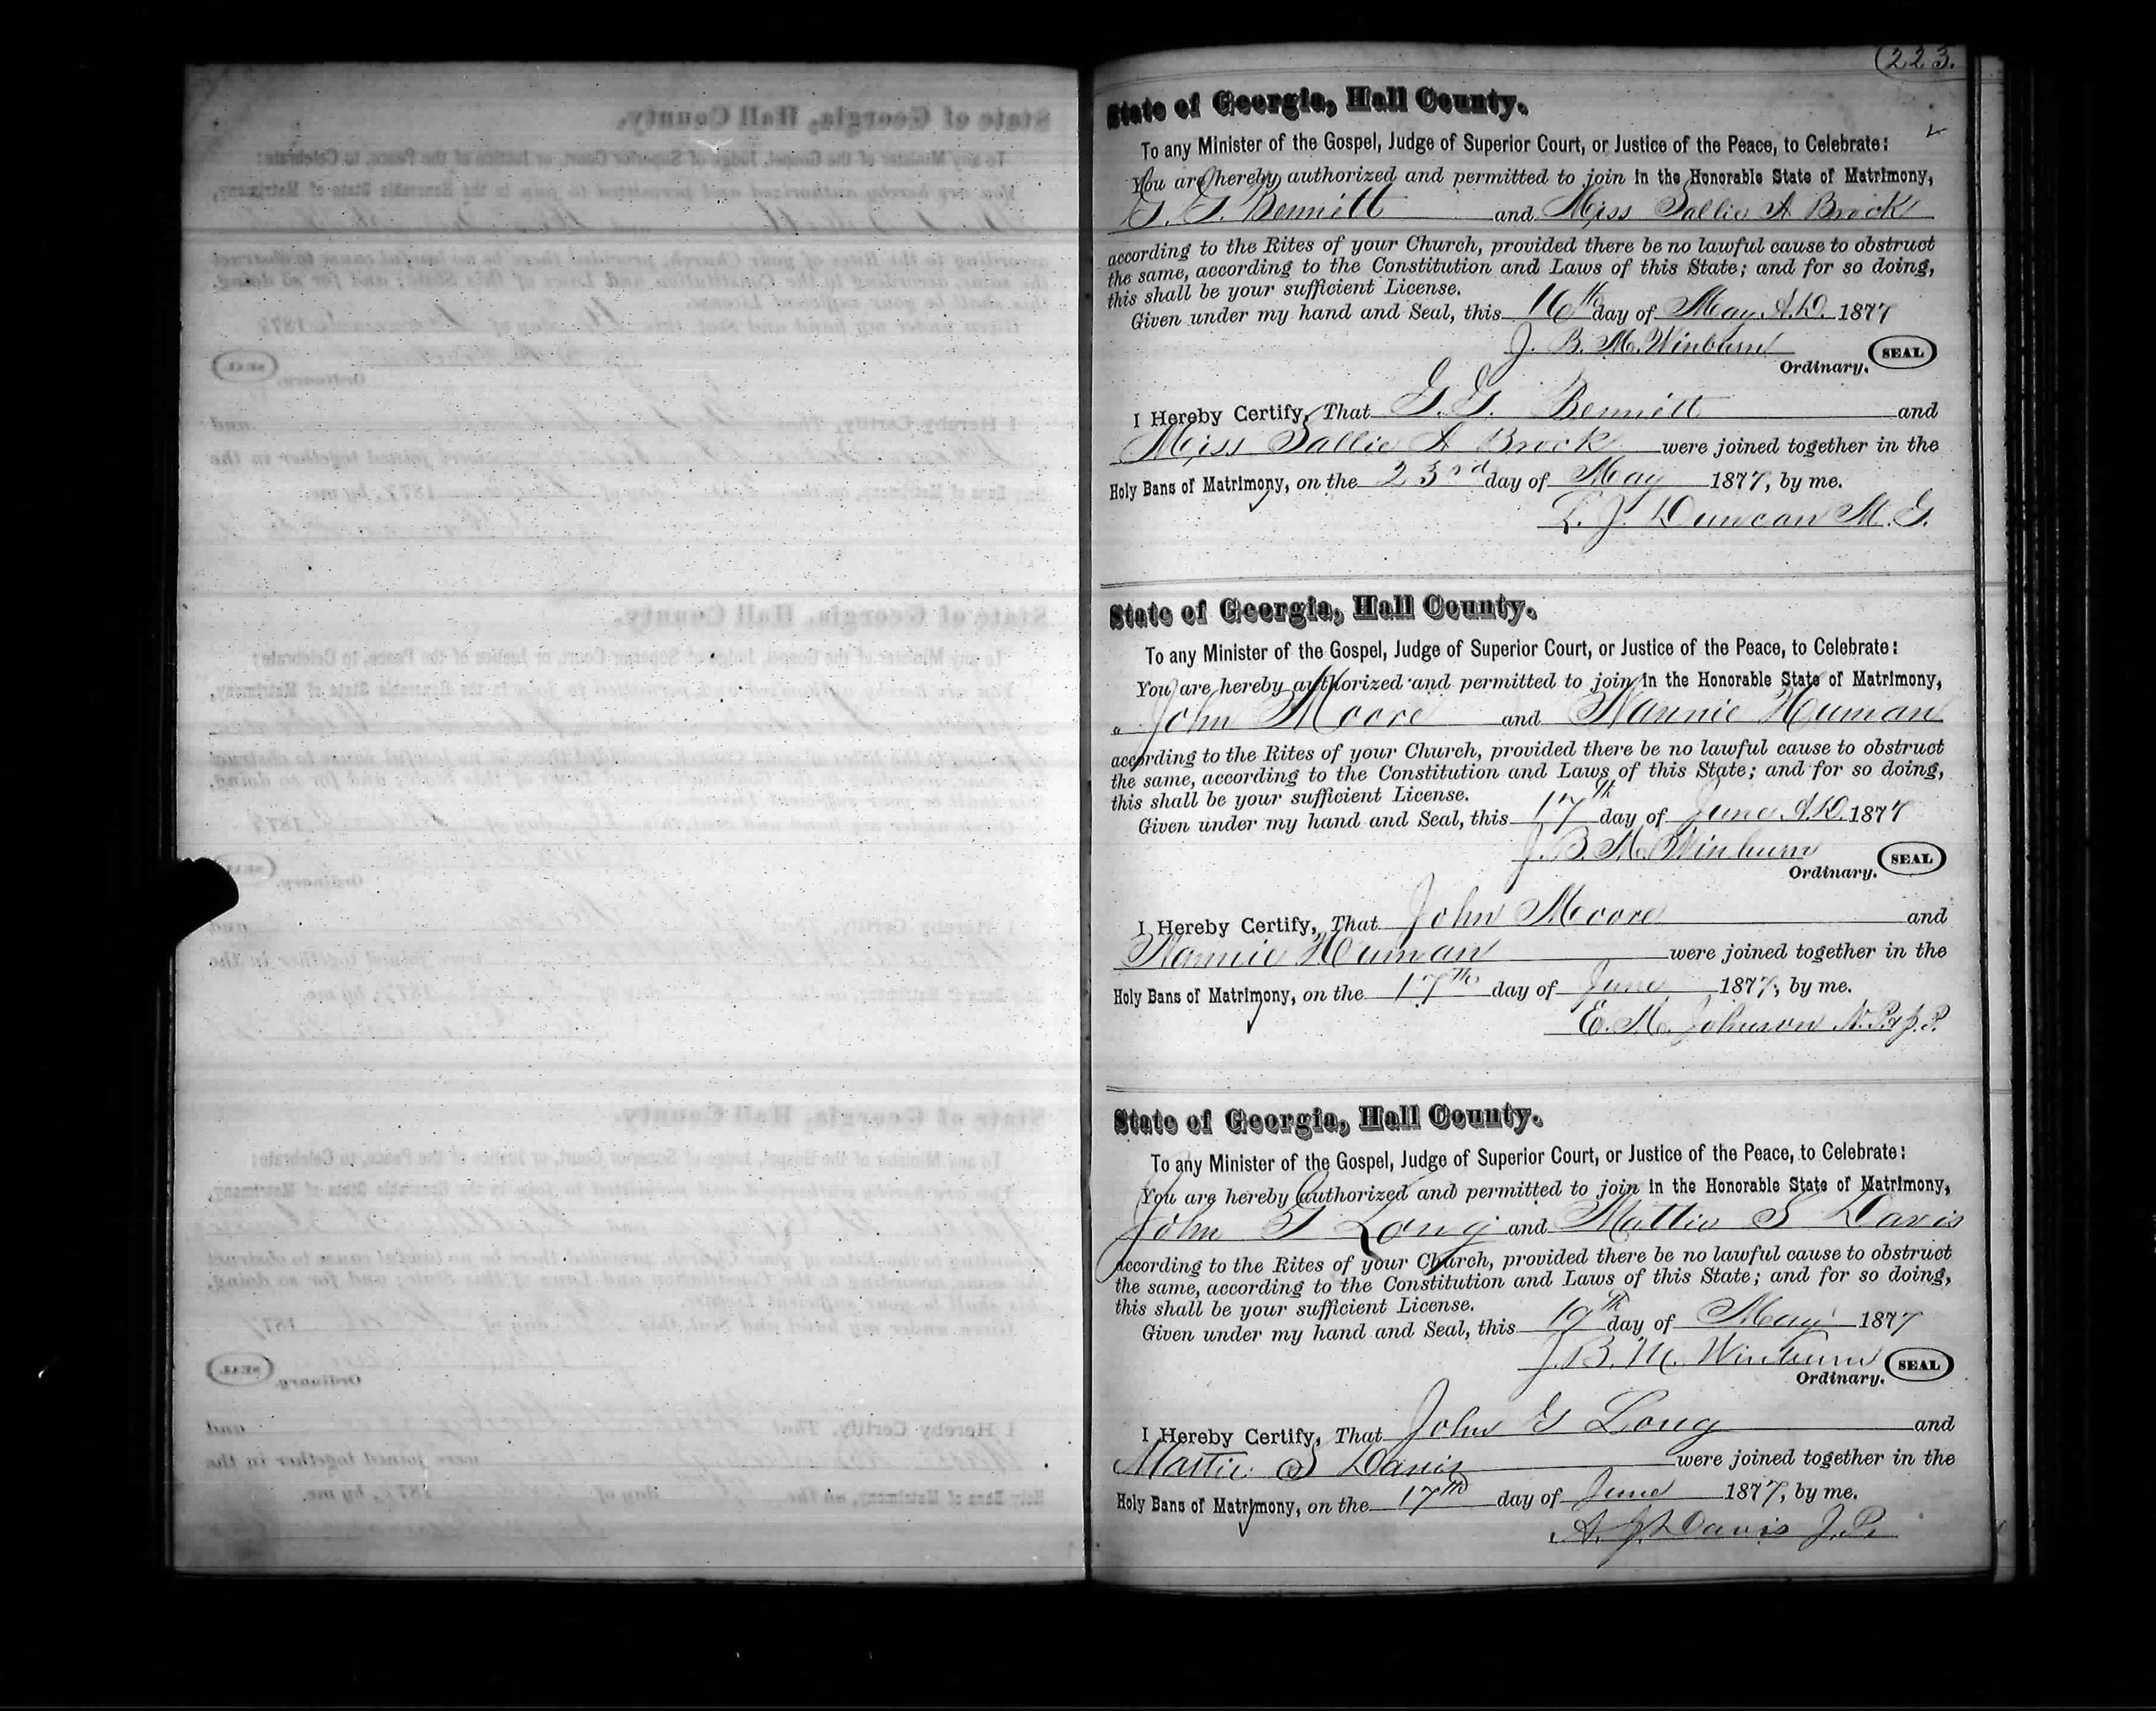 223.
State of Georgia, Hall County.
To any Minister of the Gospel, Judge of Superior Court, or Justice of the Peace, to Celebrate:
You are hereby authorized and permitted to join in the Honorable State of Matrimony,
G. G. Bennett and Miss Sallie A Brock
according to the Rites of your Church, provided there be no lawful cause to obstruct
the same, according to the Constitution and Laws of this State; and for so doing,
this shall be your sufficient License.
Given under my hand and Seal, this 16th day of May A.D. 1877
J. B. M. Winburn SEAL
Ordinary.
I Hereby Certify, That G. G. Bennett and
Miss Sallie A Brock were joined together in the
Holy Bans of Matrimony, on the 23rd day of May 1877, by me.
L. J. Duncan M. G.
State of Georgia, Hall County.
To any Minister of the Gospel, Judge of Superior Court, or Justice of the Peace, to Celebrate:
You are hereby authorized and permitted to join in the Honorable State of Matrimony,
John Moore and Nannie Human
according to the Rites of your Church, provided there be no lawful cause to obstruct
the same, according to the Constitution and Laws of this State; and for so doing,
this shall be your sufficient License.
Given under my hand and Seal, this 17th day of June A.D. 1877
J. B. M. Winburn SEAL
Ordinary.
I Hereby Certify, That John Moore and
Nannie Human were joined together in the
Holy Bans of Matrimony, on the 17th day of June 1877, by me.
E. M. Johnson N. P. & J. P.
State of Georgia, Hall County.
To any Minister of the Gospel, Judge of Superior Court, or Justice of the Peace, to Celebrate:
You are hereby authorized and permitted to join in the Honorable State of Matrimony,
John G Long and Mattie S Davis
according to the Rites of your Church, provided there be no lawful cause to obstruct
the same, according to the Constitution and Laws of this State; and for so doing,
this shall be your sufficient License.
Given under my hand and Seal, this 19th day of May 1877
J. B. M. Winburn SEAL
Ordinary.
I Hereby Certify, That John G Long and
Mattie S Davis were joined together in the
Holy Bans of Matrimony, on the 17th day of June 1877, by me.
A. J. Davis J. P.